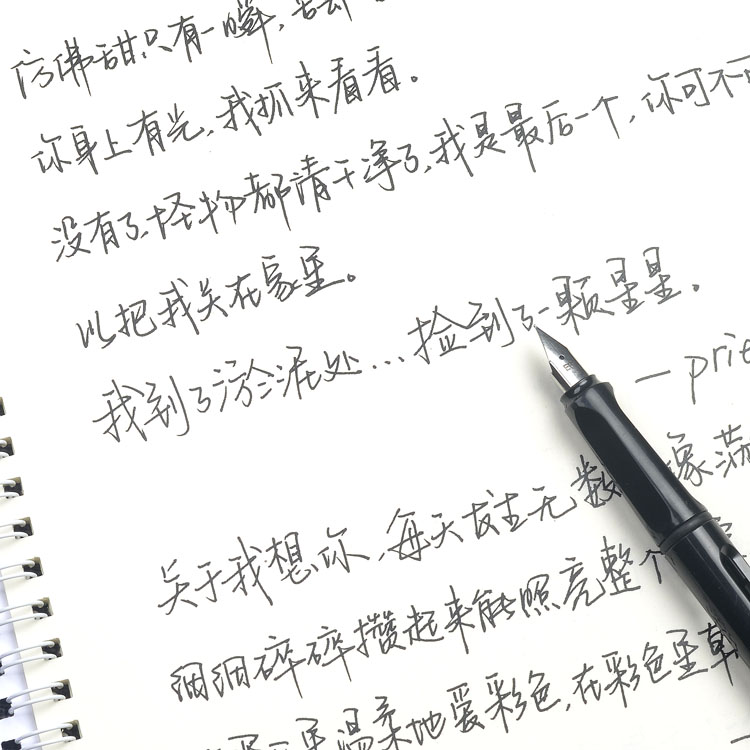 仿佛甜只有一瞬,苦却
你身上有光,我抓来看看。
没有了,怪物都清干净了,我是最后一个,你可不可
以把我关在家里。
我到了淤泥处…捡到了一颗星星。
—prie
关于我想你,每天发生无数 像荡
细细碎碎攒起来能照亮整个
温柔地爱彩色,在彩色里